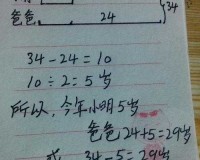 爸爸 24 34
34-24=10
10÷2=5岁
所以,今年小明5岁
爸爸24+5=29岁
或 34-5=29岁